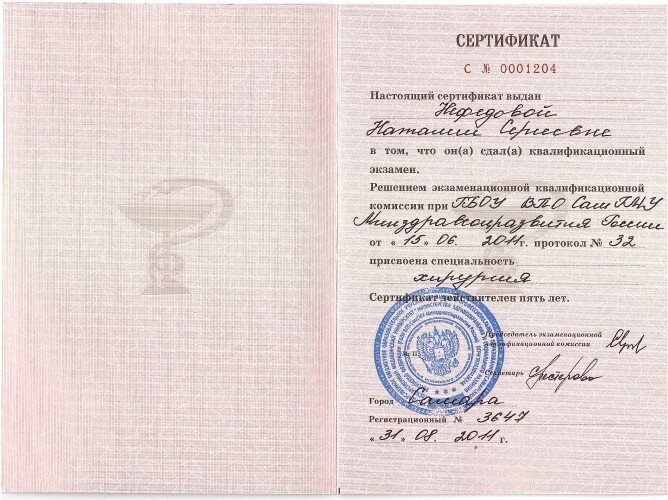 СЕРТИФИКАТ
С № 0001204
Настоящий сертификат выдан
Нефедовой
Наталии Сергеевне
в том, что он(а) сдал(а) квалификационный
экзамен.
Решением экзаменационной квалификационной
комиссии при ГБОУ ВПО СамГМУ
Минздравсоцразвития России
от « 15 » 06. 2011г. протокол № 32
присвоена специальность
хирургия
Сертификат действителен пять лет.
Председатель экзаменационной
квалификационной комиссии
М. П.
Секретарь
Город Самара
Регистрационный № 3647
« 31 » 08. 2011 г.